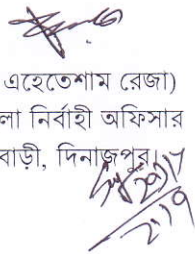 এহেতেশাম রেজা)
লা নির্বাহী অফিসার
বাড়ী, দিনাজপুর।